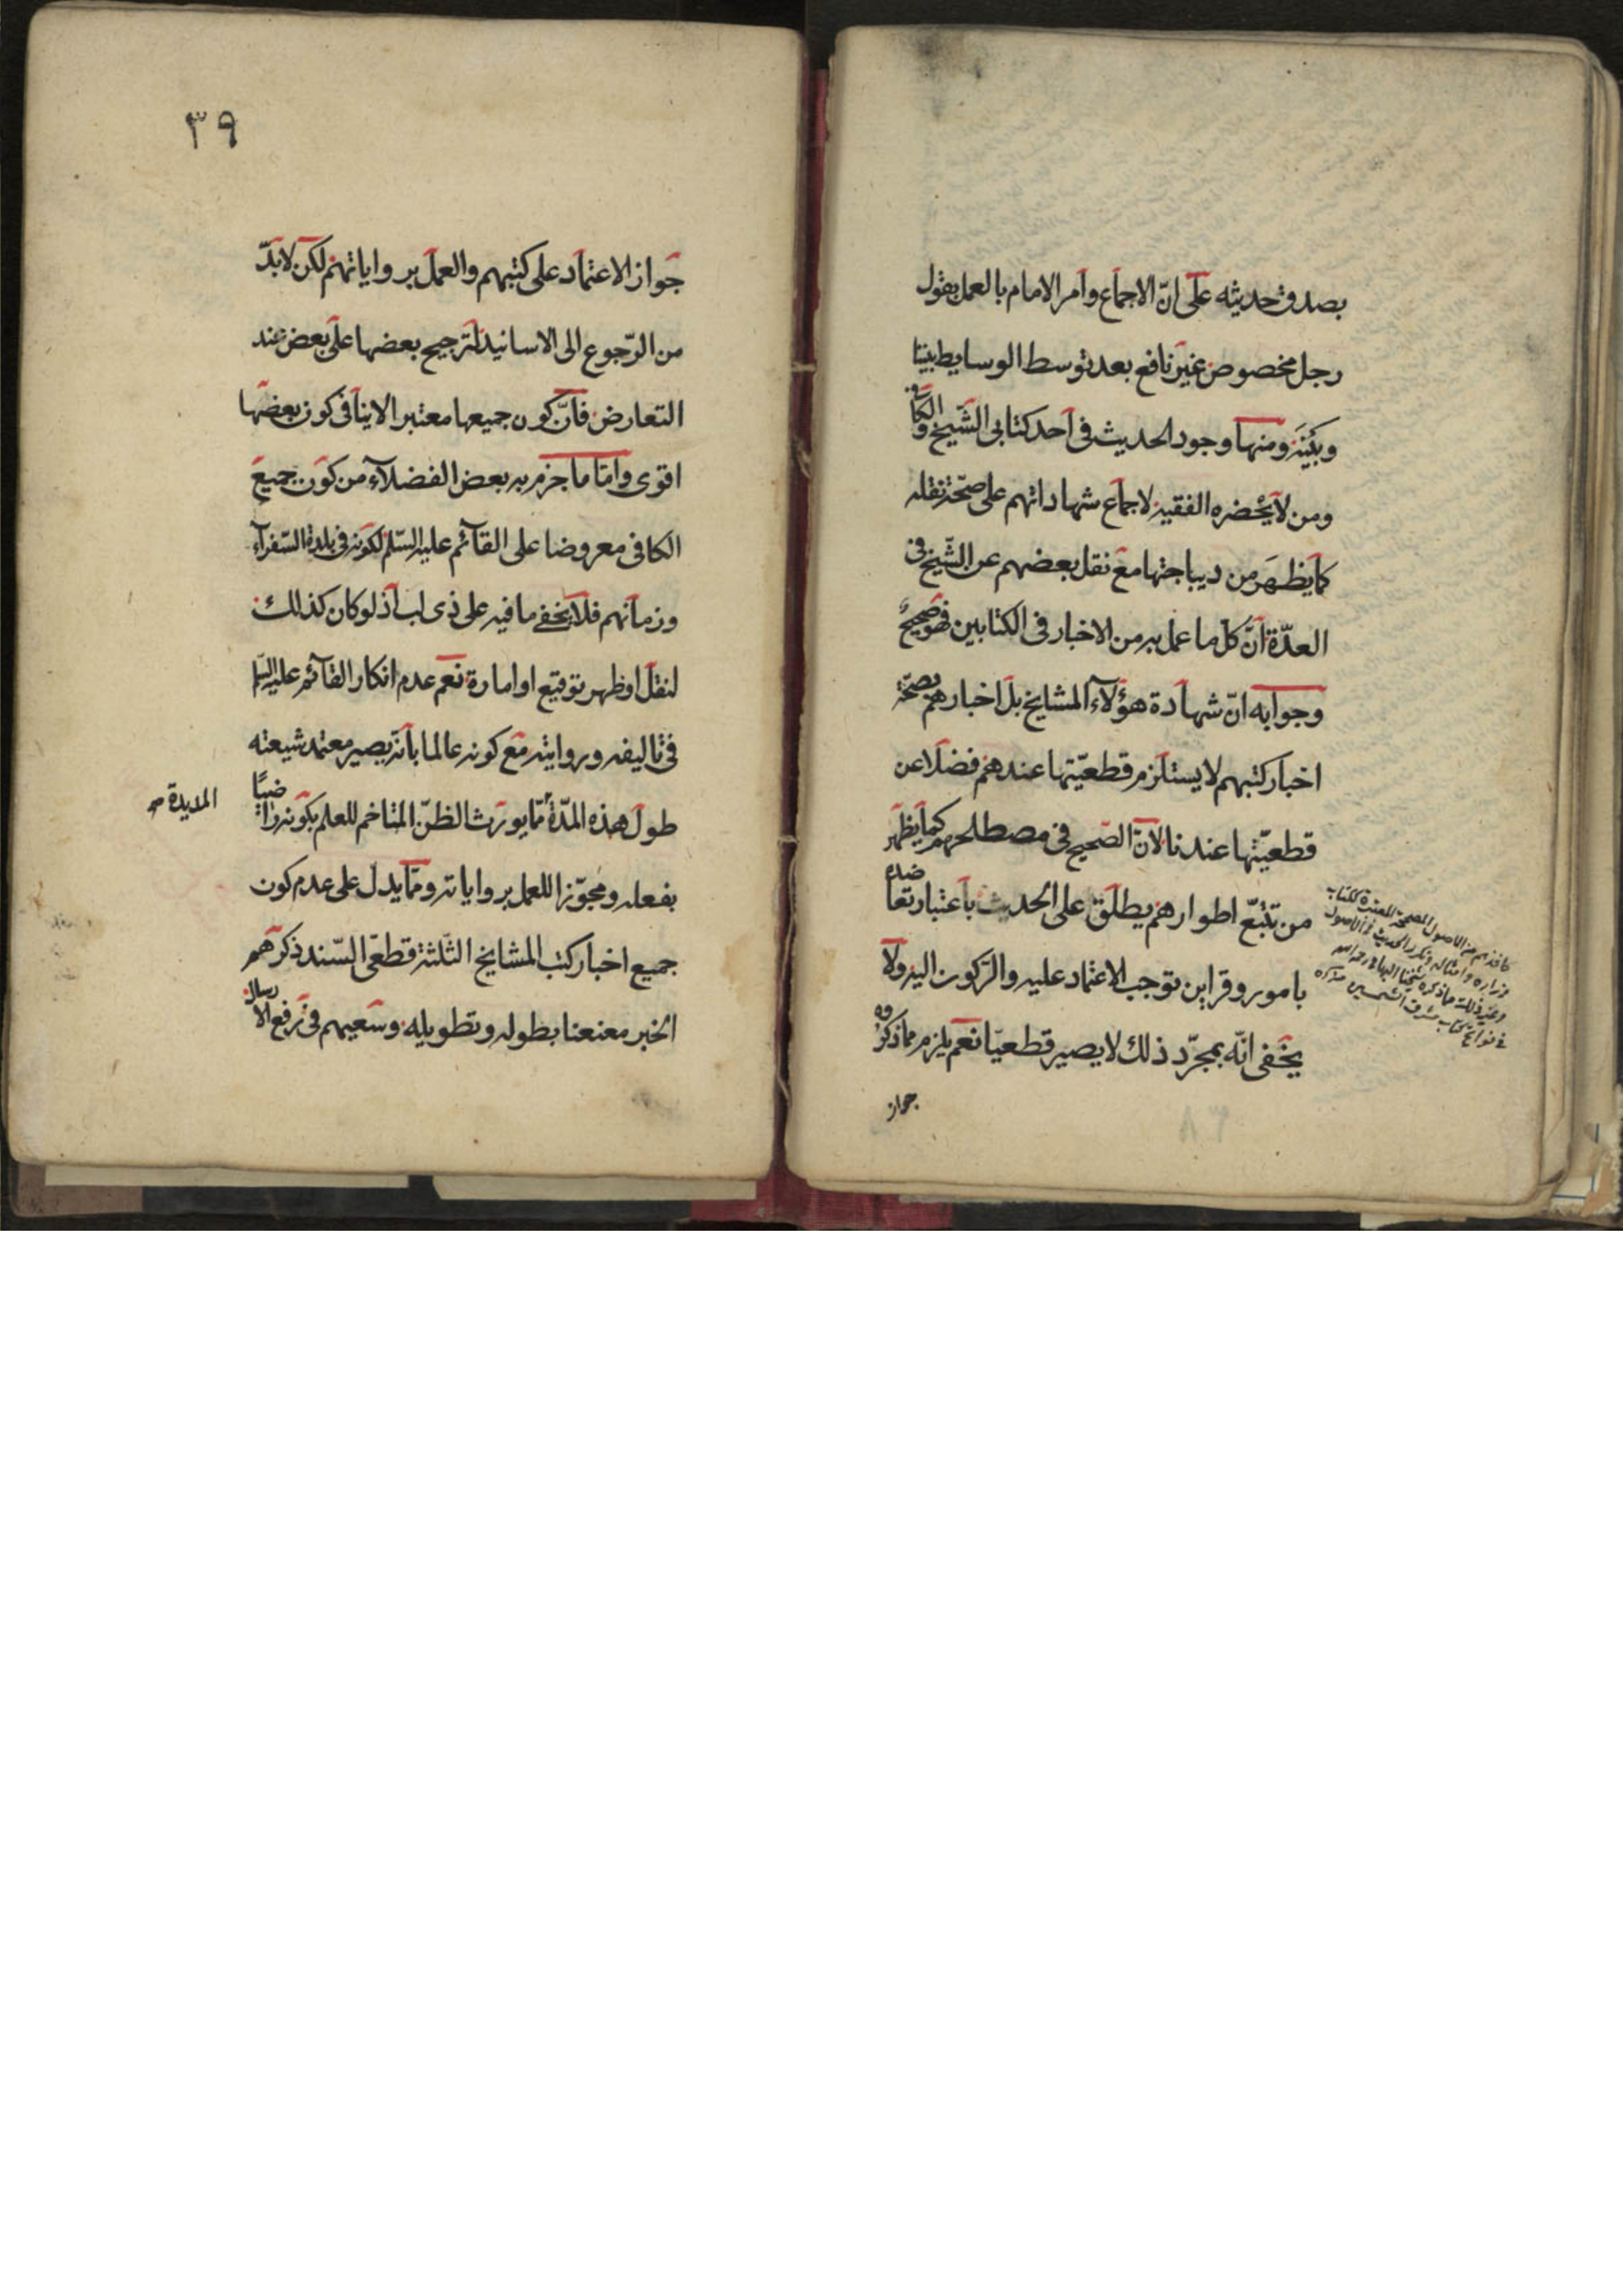 بصدق حديثه على انّ الاجماع وامر الامام بالعمل بقول
رجل مخصوص غير نافع بعد توسط الوسايط بيننا
وبينه ومنها وجود الحديث فى احد كتابى الشّيخ والكافى
ومن لا يحضره الفقيه لاجماع شهاداتهم على صحّة نقله
كما يظهر من ديباجتها مع نقل بعضهم عن الشّيخ فى
العدّة انّ كل ما عمل به من الاخبار فى الكتابين فهو صحيح
وجوابه انّ شهادة هؤلآء المشايخ بل اخبارهم بصحّة
اخبار كتبهم لا يستلزم قطعيّتها عندهم فضلا عن
قطعيّتها عندنا لانّ الصّحيح فى مصطلحهم كما يظهر
من تتبّع اطوارهم يطلق على الحديث باعتبار تعاضده
بامور وقراين توجب الاعتماد عليه والرّكون اليه ولا
يخفى انّه بمجرّد ذلك لا يصير قطعيّا نعم يلزم مما ذكروه
جواز
كاخذهم من الاصول المصححة المعتبرة ككتاب
زراره وامثاله وتكرر الحديث فى الاصول
وغير ذلك ما ذكره شيخنا البهائى رحمه الله
فى فواتح كتاب مشرق الشمسين
٣٩
جواز الاعتماد على كتبهم والعمل برواياتهم لكن لا بدّ
من الرّجوع الى الاسانيد لترجيح بعضها على بعض عند
التعارض فانّ كون جميعها معتبرا لا ينافى كون بعضها
اقوى وامّا ما جزم به بعض الفضلآء من كون جميع
الكافى معروضا على القآئم عليه السّلم لكونه فى بلدة السّفرآء
وزمانهم فلا يخفى ما فيه على ذى لب اذ لو كان كذلك
لنقل او ظهر توقيع او امارة نعم عدم انكار القآئم عليه السّلم
فى تاليفه وروايته مع كونه عالما بانّه يصير معتمد شيعته
طول هذه المدّة ممّا يورث الظنّ المتاخم للعلم بكونه راضيًا
المديدة
بفعله ومجوّزا للعمل برواياته وممّا يدل على عدم كون
جميع اخبار كتب المشايخ الثّلثة قطعىّ السّند ذكرهم
الخبر معنعنا بطوله وتطويله وسعيهم فى رفع الارسال